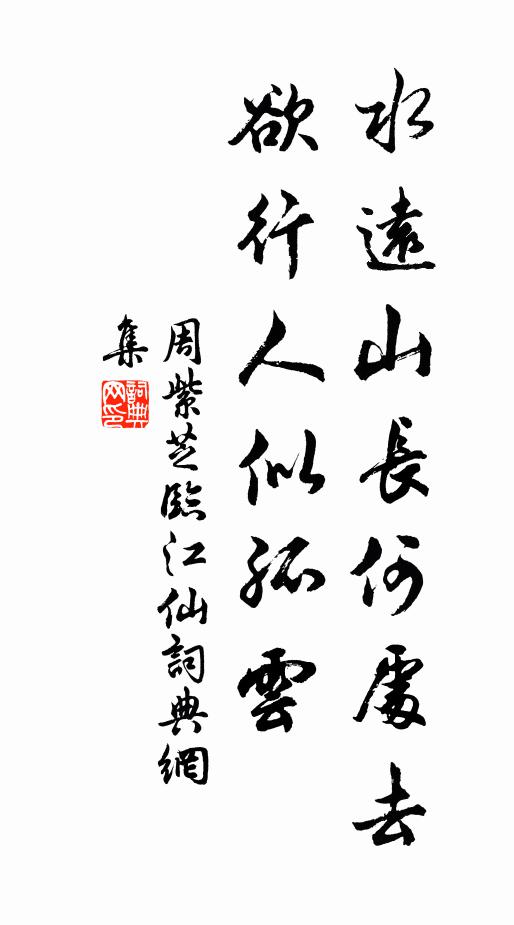 水遠山長何處去
欲行人似孤雲
周紫芝臨江仙詞典網
集
詞典网印